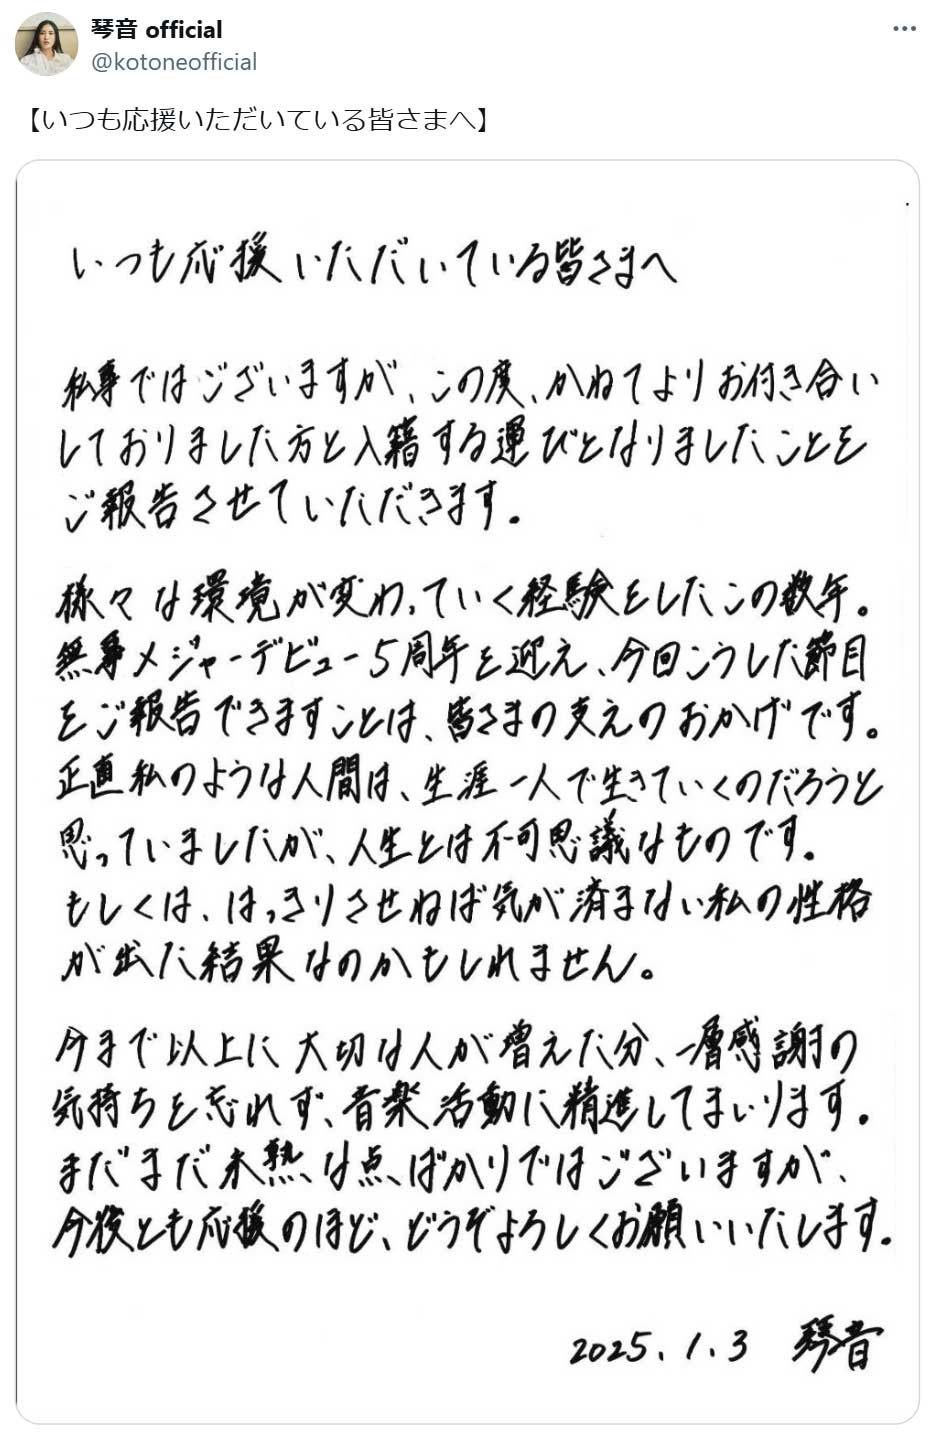 琴音 official
@kotoneofficial
【いつも応援いただいている皆さまへ】
いつも応援いただいている皆さまへ
私事ではございますが、この度、かねてよりお付き合い
しておりました方と入籍する運びとなりましたことを
ご報告させていただきます。
様々な環境が変わっていく経験をしたこの数年。
無事メジャーデビュー5周年を迎え、今回こうした節目
をご報告できますことは、皆さまの支えのおかげです。
正直私のような人間は、生涯一人で生きていくのだろうと
思っていましたが、人生とは不可思議なものです。
もしくは、はっきりさせねば気が済まない私の性格
が出た結果なのかもしれません。
今まで以上に大切な人が増えた分、一層感謝の
気持ちを忘れず、音楽活動に精進してまいります。
まだまだ未熟な点ばかりではございますが、
今後とも応援のほど、どうぞよろしくお願いいたします。
2025.1.3 琴音